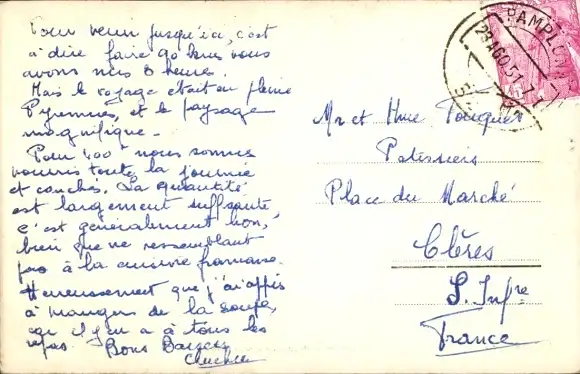 Pour venir jusqu'ici, c'est
à dire faire 90 kms nous
avons mis 8 heures.
Mais le voyage était en pleine
Pyrennées, et le paysage
magnifique -
Pour 400 nous sommes
nourris toute la journée
et couchés. La quantité
est largement suffisante,
c'est généralement bon,
bien que ne ressemblant
pas à la cuisine française.
Heureusement que j'ai appris
à manger de la soupe,
car il y en a à tous les
repas. Bons Baisers
PAMPLONA
23 AGO 51
Mr et Mme
Patissiers
Place du Marché
Clères
S. Infre
France